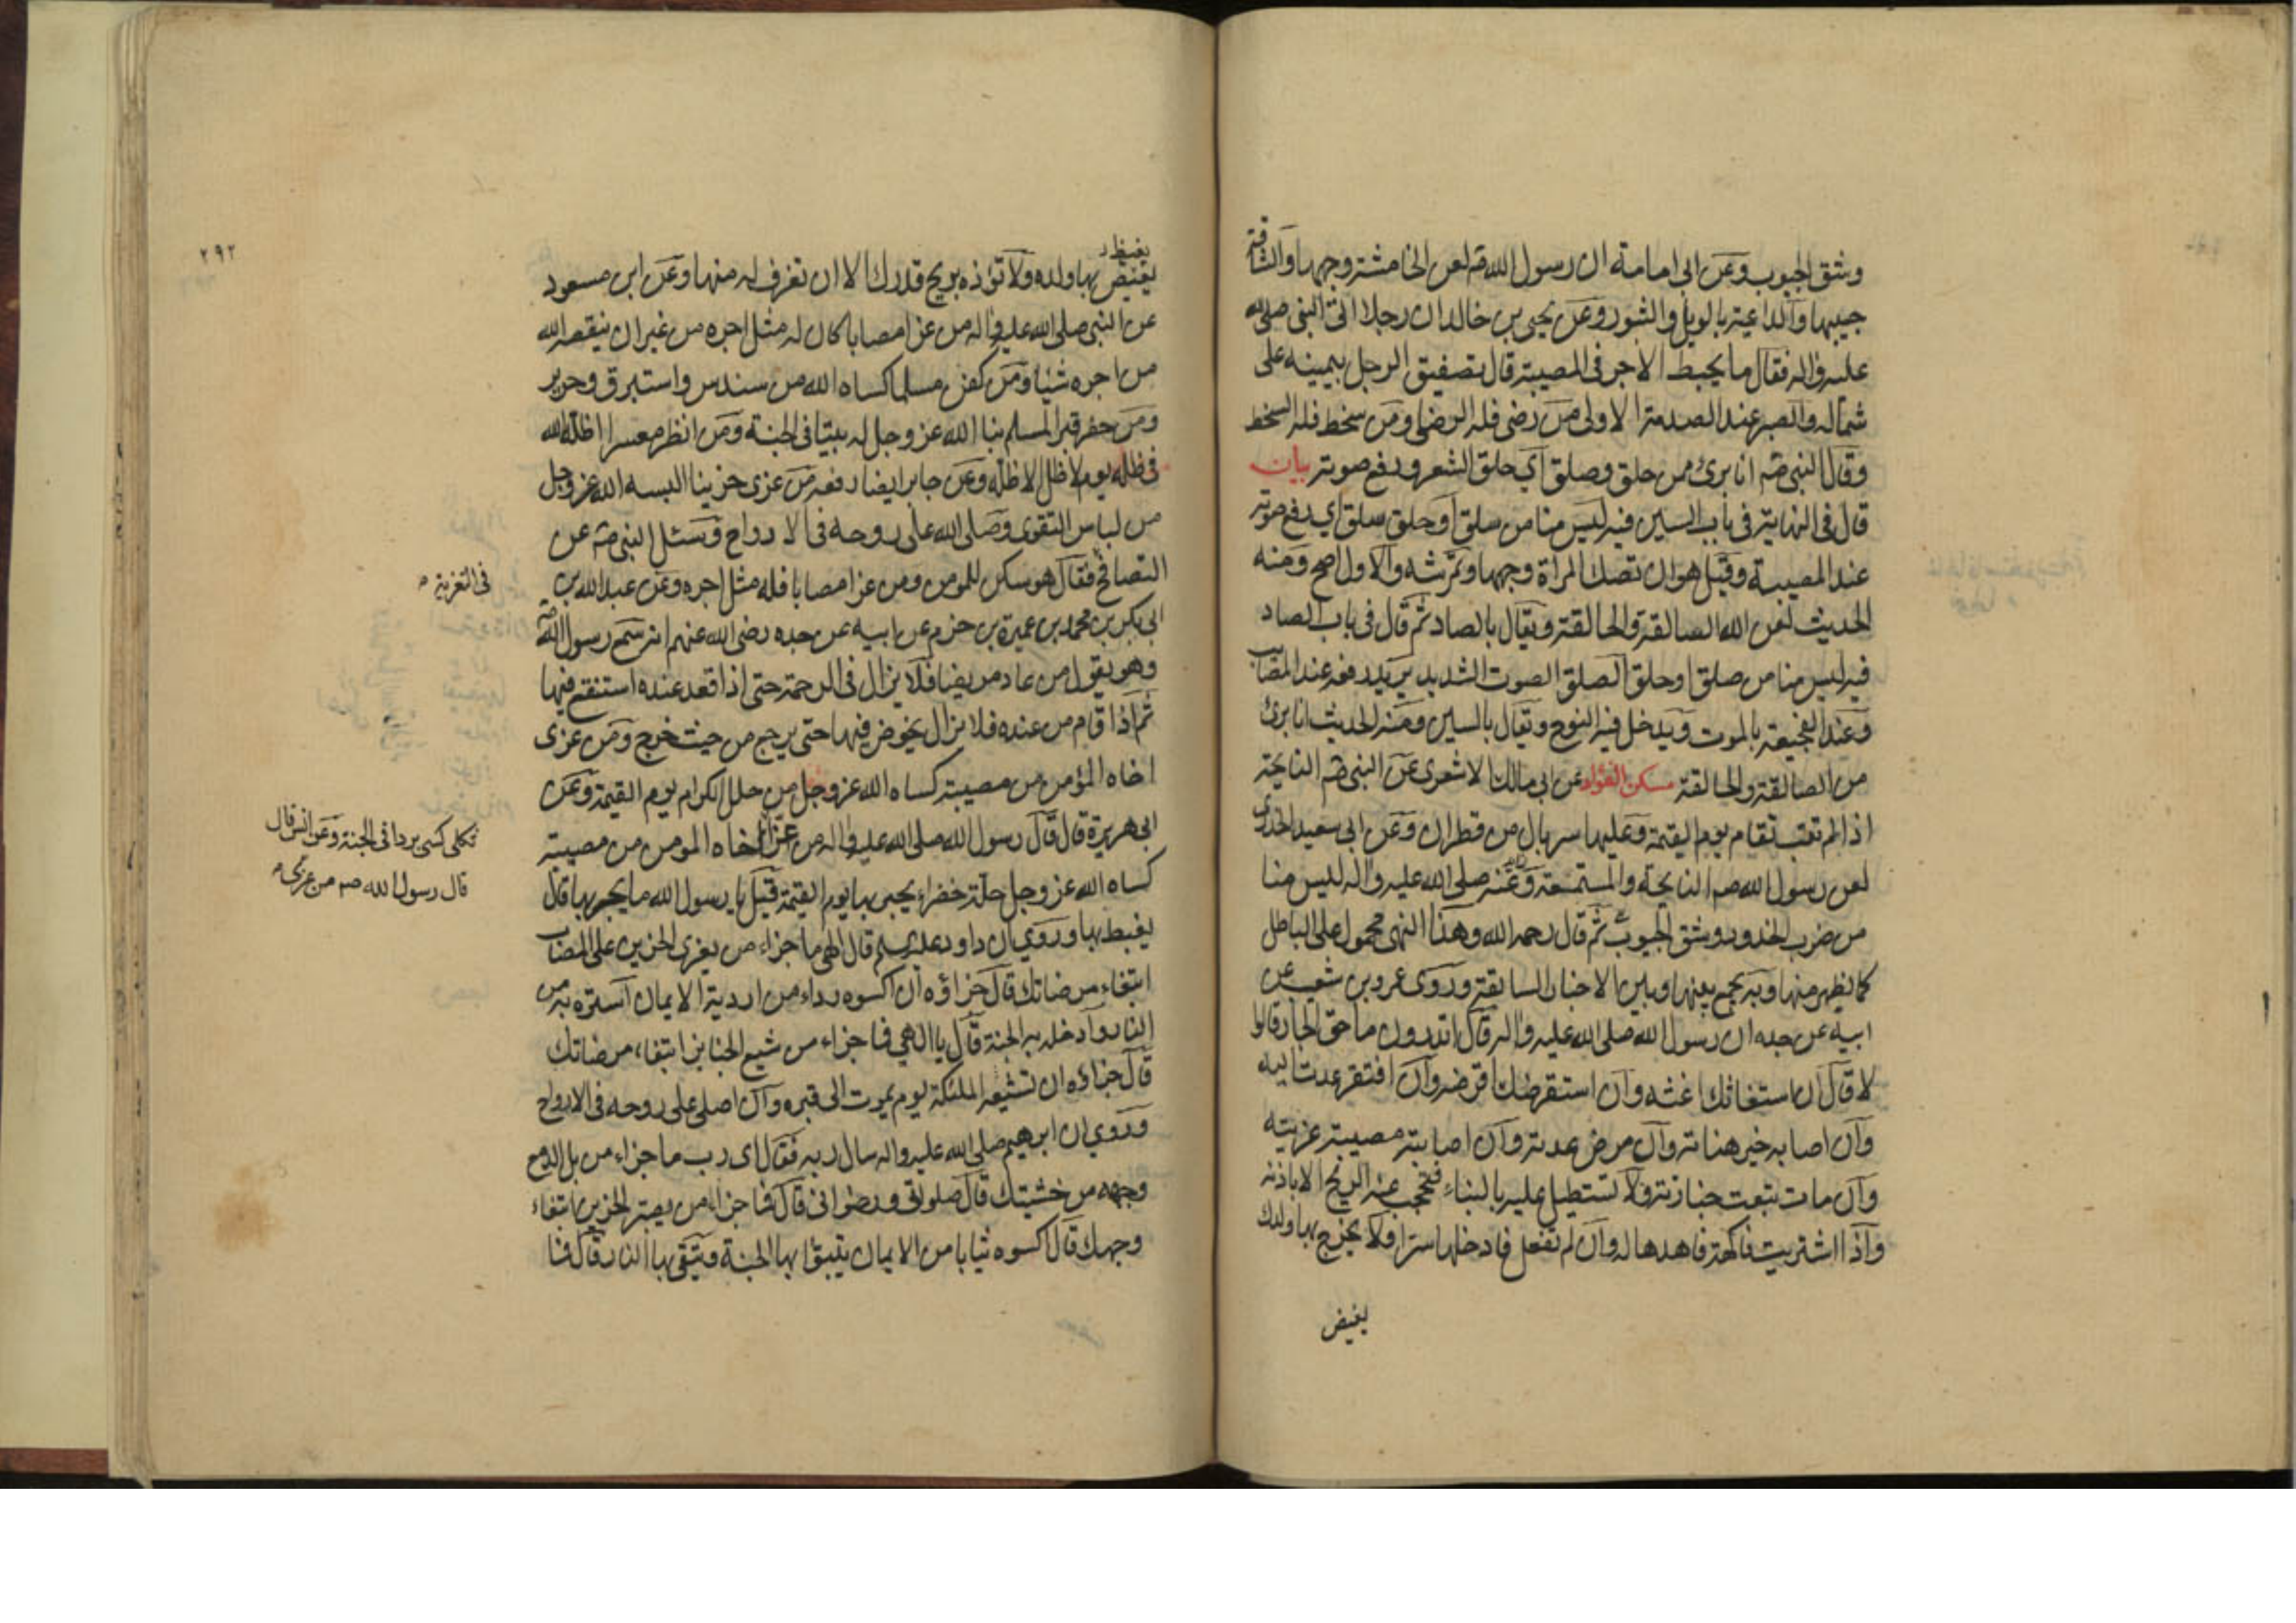 وشق الجيوب وعن ابى امامة ان رسول الله صم لعن الخامشة وجهها والشاقة
جيبها والداعية بالويل والثبور وعن يحيى بن خالد ان رجلا اتى النبى صلى الله
عليه واله فقال ما يحبط الاجر فى المصيبة قال تصفيق الرجل بيمينه على
شماله والصبر عند الصدمة الاولى من رضى فله الرضا ومن سخط فله السخط
وقال النبى صم انا برئ ممن حلق وصلق اي حلق الشعر ورفع صوته بيان
قال فى النهاية فى باب السين فيه ليس منا من سلق او حلق سلق اي رفع صوته
عند المصيبة وقيل هو ان تصك المراة وجهها وتمرشه والاول اصح ومنه
الحديث لعن الله الصالقة والحالقة ويقال بالصاد ثم قال فى باب الصاد
فيه ليس منا من صلق او حلق الصلق الصوت الشديد يريد رفعه عند المصاب
وعند الفجيعة بالموت ويدخل فيه النوح ويقال بالسين ومنه الحديث انا برئ
من الصالقة والحالقة مسكن الفؤاد عن ابى مالك الاشعرى عن النبى صم النايحة
اذا لم تتب تقام يوم القيمة وعليها سربال من قطران وعن ابى سعيد الخدرى
لعن رسول الله صم النايحة والمستمعة وعنه صلى الله عليه واله ليس منا
من ضرب الخدود وشق الجيوب ثم قال رحمه الله وهذا النهى محمول على الباطل
كما يظهر منها وبه يجمع بينها وبين الاخبار السابقة وروى عمرو بن شعيب عن
ابيه عن جده ان رسول الله صلى الله عليه واله قال اتدرون ما حق الجار قالوا
لا قال ان استغاثك اغثه وان استقرضك اقرضه وان افتقر عدت اليه
وان اصابه خير هناته وان مرض عدته وان اصابته مصيبة عزيته
وان مات تبعت جنازته ولا تستطيل عليه بالبناء فتحجب عنه الريح الا باذنه
واذا اشتريت فاكهة فاهدها له وان لم تفعل فادخلها سرا ولا يخرج بها ولدك
يغيض
يغيظ
يغيض بها ولده ولا تؤذه بريح قدرك الا ان تغرف له منها وعن ابن مسعود
عن النبى صلى الله عليه واله من عزا مصابا كان له مثل اجره من غير ان ينقصه الله
من اجره شيئا ومن كفن مسلما كساه الله من سندس واستبرق وحرير
ومن حفر قبرا لمسلم بنا الله عز وجل له بيتا فى الجنة ومن انظر معسرا اظله الله
فى ظله يوم لا ظل الا ظله وعن جابر ايضا رفعه من عزى حزينا البسه الله عز وجل
من لباس التقوى وصلى الله على روحه فى الارواح وسئل النبى صم عن
التصافح فقال هو سكن للمومن ومن عزا مصابا فله مثل اجره وعن عبد الله بن
فى التعزية
ابى بكر بن محمد بن عميرة بن حزم عن ابيه عن جده رضى الله عنهم انه سمع رسول الله صم
وهو يقول من عاد مريضا فلا يزال فى الرحمة حتى اذا قعد عنده استنقع فيها
ثم اذا قام من عنده فلا يزال يخوض فيها حتى يرجع من حيث خرج ومن عزى
اخاه المؤمن من مصيبة كساه الله عز وجل من حلل الكرام يوم القيمة وعن
ابى هريرة قال قال رسول الله صلى الله عليه واله من عزا اخاه المومن من مصيبة
ثكلى كسى بردا فى الجنة وعن انس قال
قال رسول الله صم من عزى
كساه الله عز وجل حلة خضراء يحبر بها يوم القيمة قيل يا رسول الله ما يحبر بها قال
يغبط بها وروي ان داود عليه السلم قال الهى ما جزاء من يعزى الحزين على المصاب
ابتغاء مرضاتك قال جزاؤه ان اكسوه رداء من اردية الايمان استره به من
النار وادخله به الجنة قال يا الهي فما جزاء من شيع الجنايز ابتغاء مرضاتك
قال جزاؤه ان تشيعه الملئكة يوم يموت الى قبره وان اصلى على روحه فى الارواح
وروي ان ابرهيم صلى الله عليه واله سال ربه فقال اى رب ما جزاء من بل الدمع
وجهه من خشيتك قال صلواتى ورضوانى قال فما جزاء من يصبر الحزين ابتغاء
وجهك قال اكسوه ثيابا من الايمان يتبوا بها الجنة ويتقى بها النار قال فما
٢٩٢